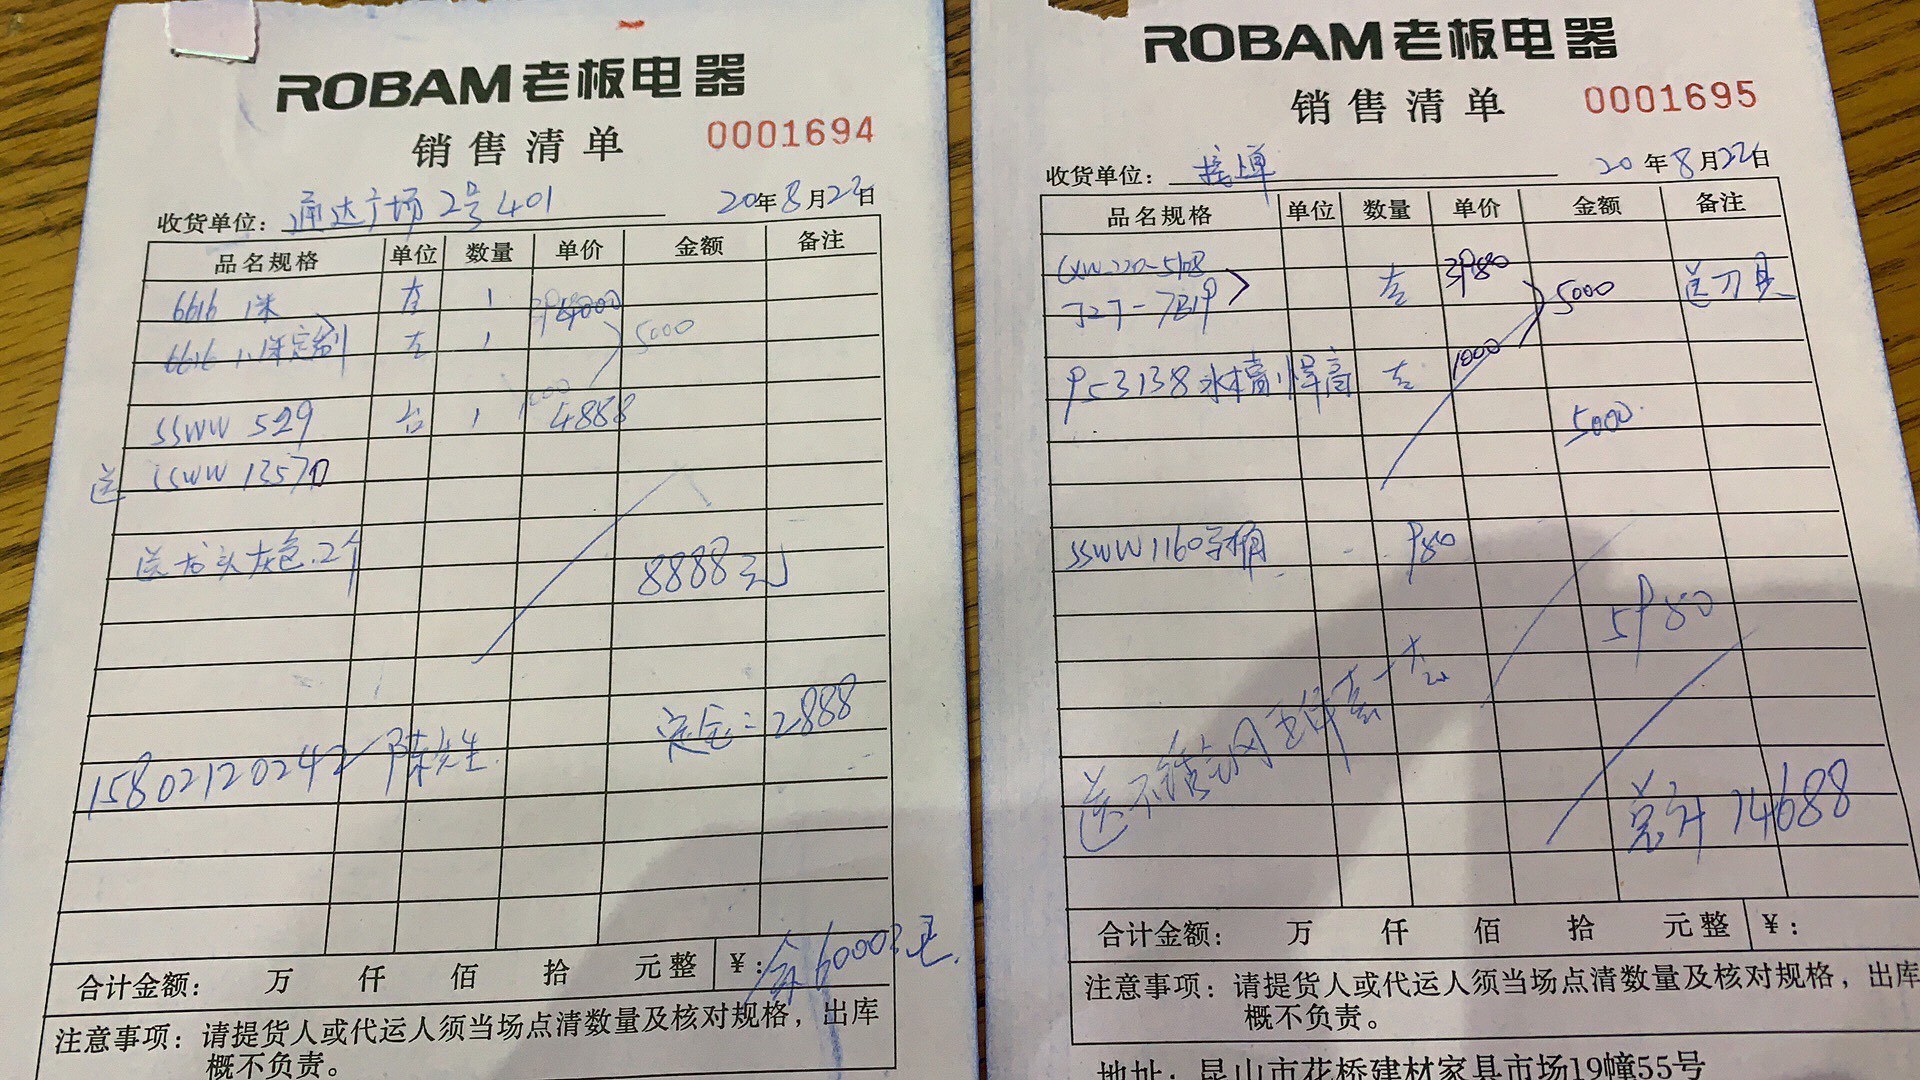 ROBAM老板电器
销售清单
0001694
收货单位：通达广场2号401 20年8月22日
品名规格 单位 数量 单价 金额 备注
6616 1米 左 1 4000
6616 1.1米定制 左 1 5000
SSWW 529 台 1 4888
送 SSWW 13570
送龙头灰色.2个
8888元
定金：2888
15802120242 陈先生
合计金额： 万 仟 佰 拾 元整 ¥：余6000元
注意事项：请提货人或代运人须当场点清数量及核对规格，出库
概不负责。
ROBAM老板电器
销售清单
0001695
收货单位：接单 20年8月22日
品名规格 单位 数量 单价 金额 备注
CXW-220-5108 3980
JZT-7B19 左 5000 送刀具
953138水槽 悍高 左 1000
5000
SSWW1160马桶 980
5980
送不锈钢五件套一套
总计 14688
合计金额： 万 仟 佰 拾 元整 ¥：
注意事项：请提货人或代运人须当场点清数量及核对规格，出库
概不负责。
地址：昆山市花桥建材家具市场19幢55号